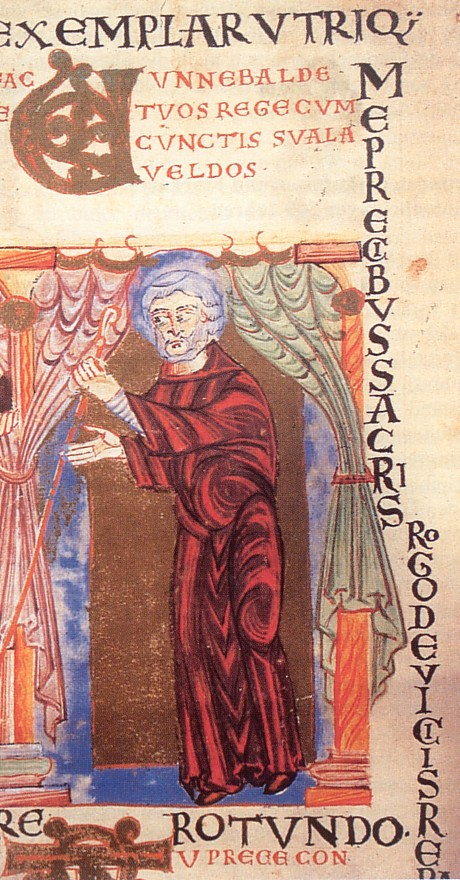 EXEMPLAR VTRIQ;
AC UNNEBALDE
E TVOS REGE CVM
CVNCTIS SVALA
VELDOS
ME PRECIBVS SACRIS
ROGO DE VICIIS RE
RE ROTVNDO.
V PRECE CON